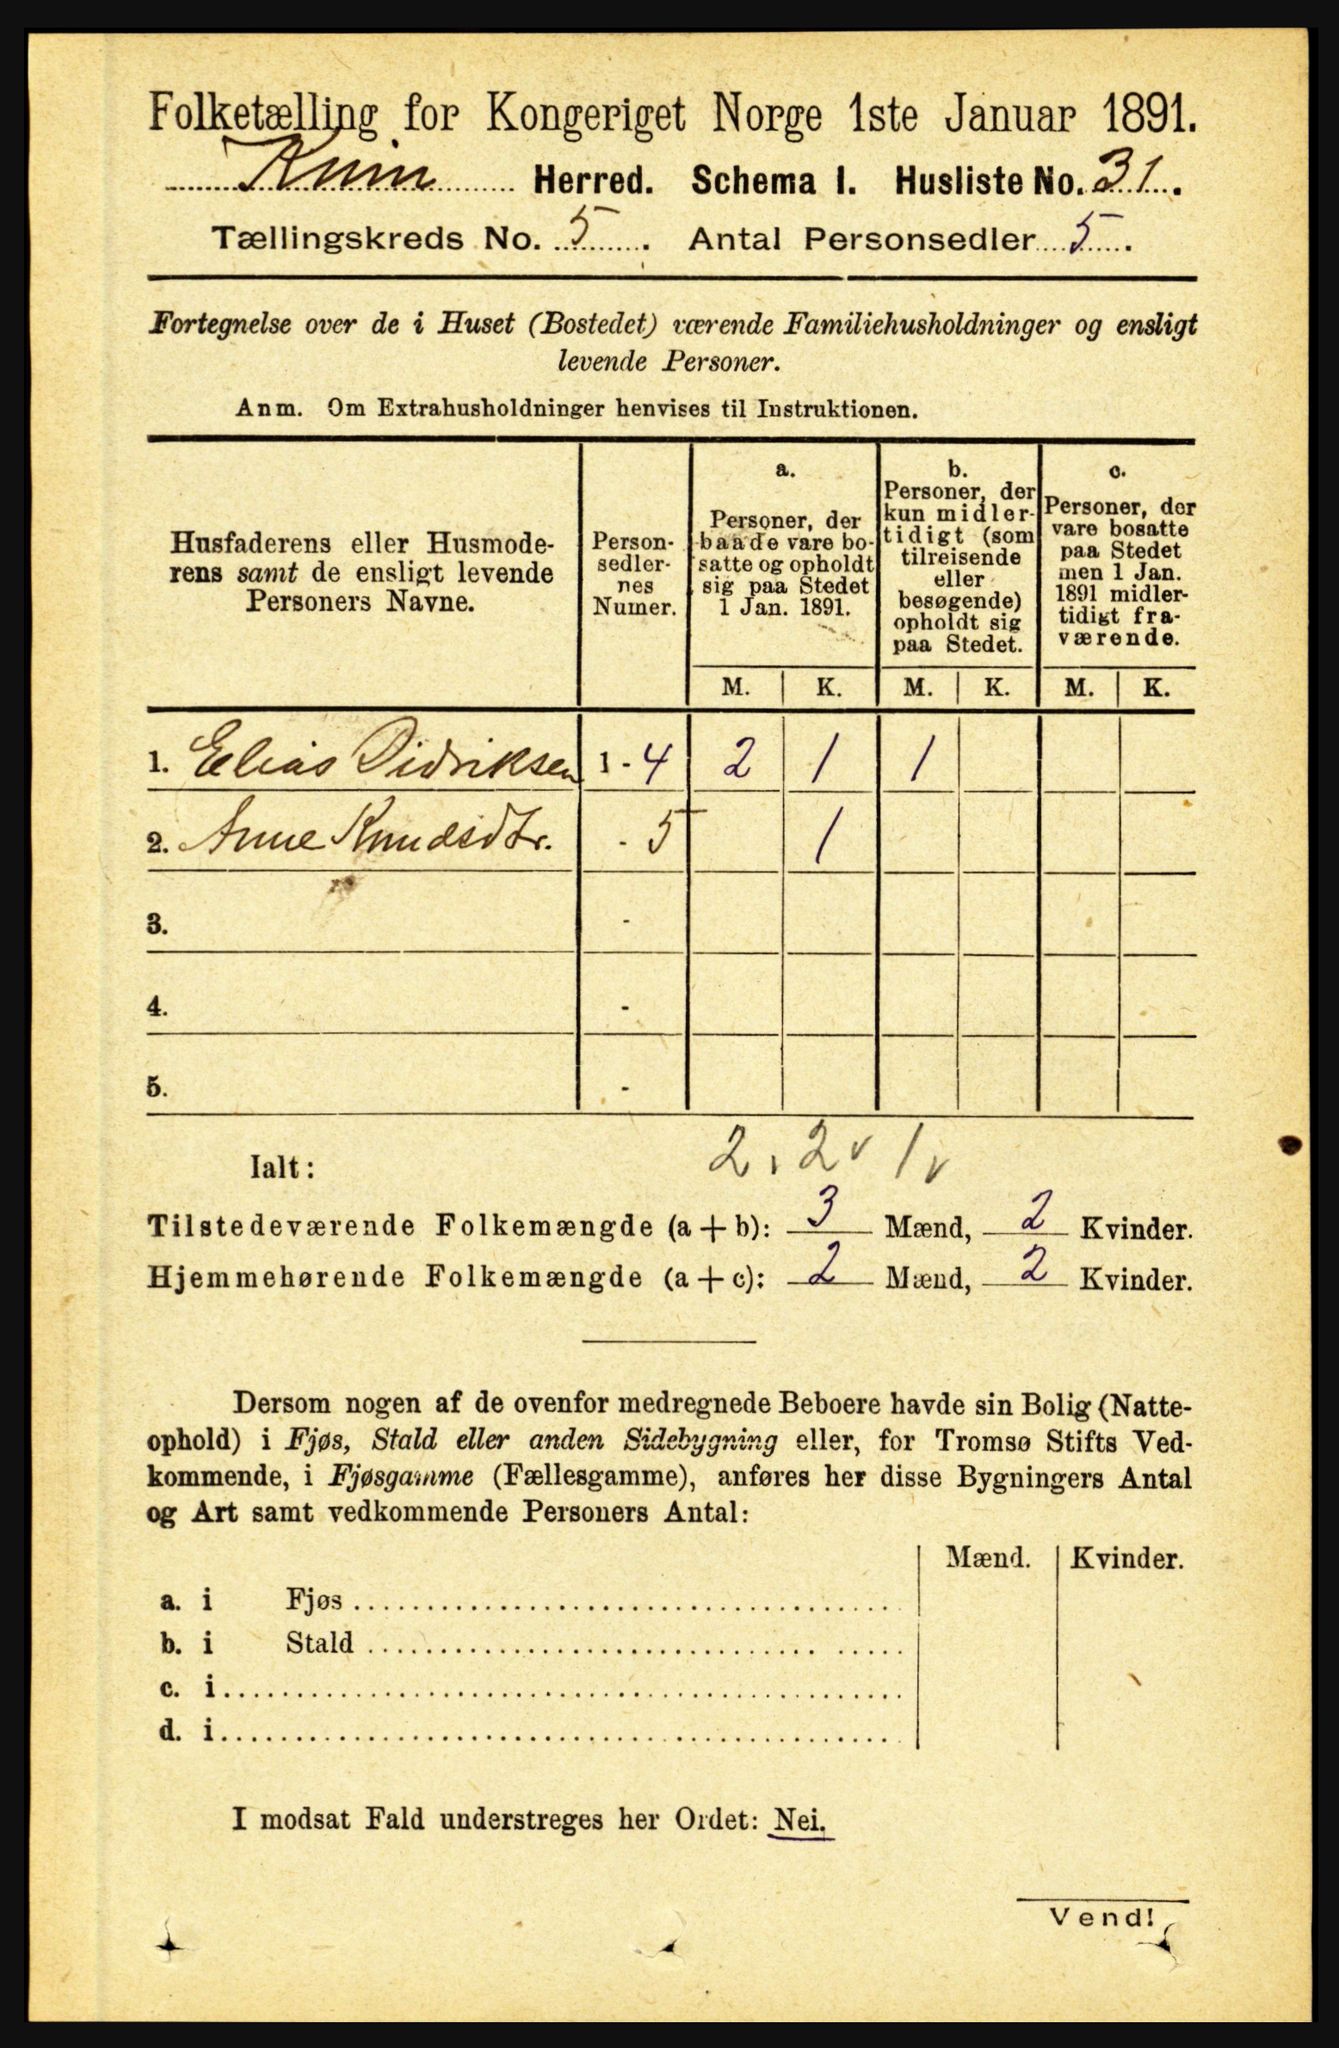 Folketælling for Kongeriget Norge 1ste Januar 1891.
Kinn Herred. Schema I. Husliste No. 31.
Tællingskreds No. 5. Antal Personsedler 5.
Fortegnelse over de i Huset (Bostedet) værende Familiehusholdninger og ensligt
levende Personer.
Anm. Om Extrahusholdninger henvises til Instruktionen.
Husfaderens eller Husmode-
rens samt de ensligt levende
Personers Navne.
Person-
sedler-
nes
Numer.
a.
Personer, der
baade vare bo-
satte og opholdt
sig paa Stedet
1 Jan. 1891.
b.
Personer, der
kun midler-
tidigt (som
tilreisende
eller
besøgende)
opholdt sig
paa Stedet.
c.
Personer, der
vare bosatte
paa Stedet
men 1 Jan.
1891 midler-
tidigt fra-
værende.
M. K. M. K. M. K.
1. Elias Didriksen 1 - 4 2 1 1
2. Anne Knudsdtr. - 5 1
3. -
4. -
5. -
Ialt: 2. 2 v 1 v
Tilstedeværende Folkemængde (a + b): 3 Mænd, 2 Kvinder.
Hjemmehørende Folkemængde (a + c): 2 Mænd, 2 Kvinder.
Dersom nogen af de ovenfor medregnede Beboere havde sin Bolig (Natte-
ophold) i Fjøs, Stald eller anden Sidebygning eller, for Tromsø Stifts Ved-
kommende, i Fjøsgamme (Fællesgamme), anføres her disse Bygningers Antal
og Art samt vedkommende Personers Antal:
Mænd. Kvinder.
a. i Fjøs
b. i Stald
c. i
d. i
I modsat Fald understreges her Ordet: Nei.
Vend!